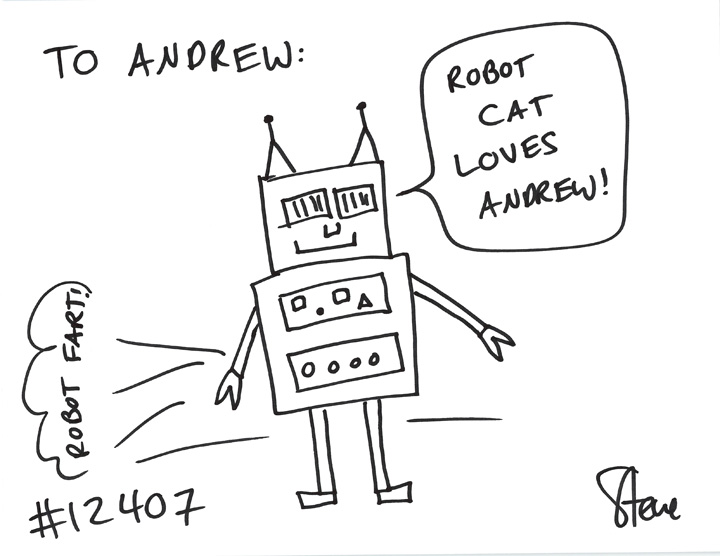 TO ANDREW:
ROBOT
CAT
LOVES
ANDREW!
ROBOT FART!
#12407
Steve